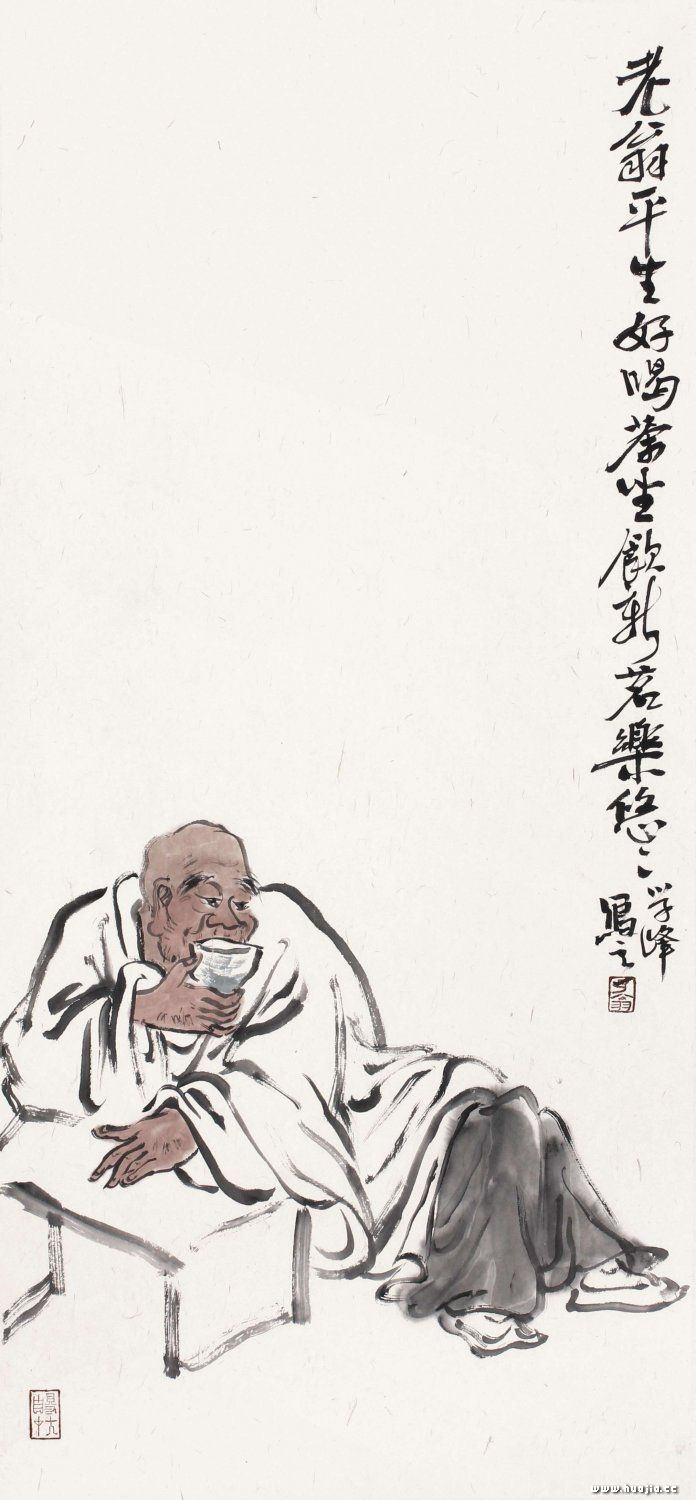 老翁平生好喝茶坐飲新茗樂悠々
学峰
寫之
www.huajia.cc